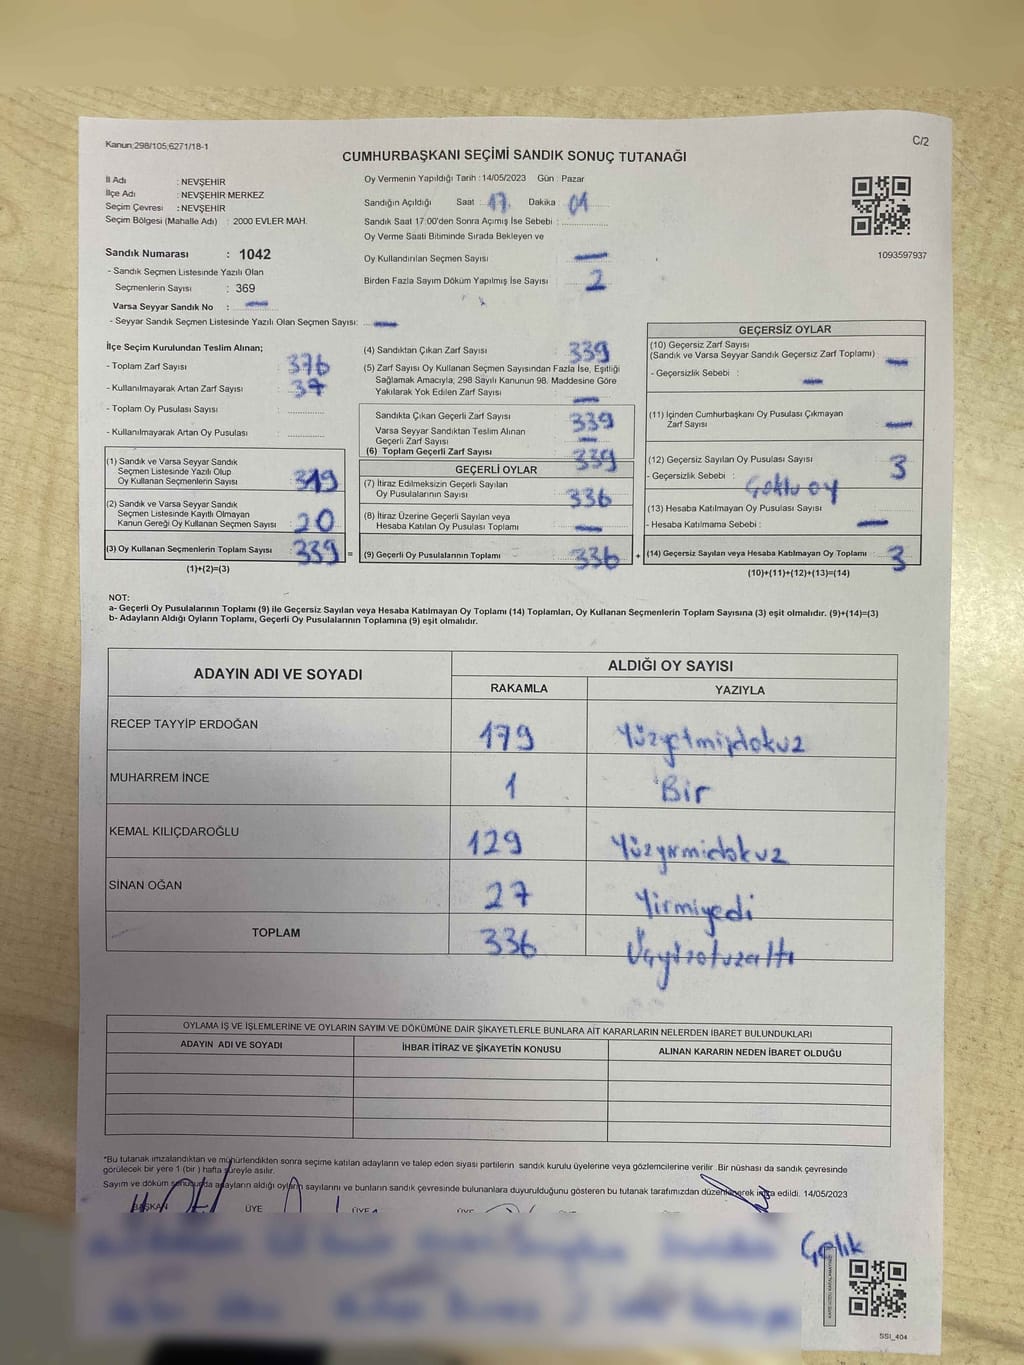 Kanun;298/105;6271/18-1
C/2
CUMHURBAŞKANI SEÇİMİ SANDIK SONUÇ TUTANAĞI
İl Adı : NEVŞEHİR
İlçe Adı : NEVŞEHİR MERKEZ
Seçim Çevresi : NEVŞEHİR
Seçim Bölgesi (Mahalle Adı) : 2000 EVLER MAH.
Sandık Numarası : 1042
- Sandık Seçmen Listesinde Yazılı Olan
Seçmenlerin Sayısı : 369
Varsa Seyyar Sandık No : —
- Seyyar Sandık Seçmen Listesinde Yazılı Olan Seçmen Sayısı: —
Oy Vermenin Yapıldığı Tarih : 14/05/2023 Gün : Pazar
Sandığın Açıldığı Saat : 17 Dakika : 01
Sandık Saat 17:00'den Sonra Açımış İse Sebebi :
Oy Verme Saati Bitiminde Sırada Bekleyen ve
Oy Kullandırılan Seçmen Sayısı —
Birden Fazla Sayım Döküm Yapılmış İse Sayısı : 2
1093597937
İlçe Seçim Kurulundan Teslim Alınan;
- Toplam Zarf Sayısı : 376
- Kullanılmayarak Artan Zarf Sayısı : 37
- Toplam Oy Pusulası Sayısı :
- Kullanılmayarak Artan Oy Pusulası :
(1) Sandık ve Varsa Seyyar Sandık
Seçmen Listesinde Yazılı Olup
Oy Kullanan Seçmenlerin Sayısı : 319
(2) Sandık ve Varsa Seyyar Sandık
Seçmen Listesinde Kayıtlı Olmayan
Kanun Gereği Oy Kullanan Seçmen Sayısı : 20
(3) Oy Kullanan Seçmenlerin Toplam Sayısı : 339 =
(1)+(2)=(3)
(4) Sandıktan Çıkan Zarf Sayısı : 339
(5) Zarf Sayısı Oy Kullanan Seçmen Sayısından Fazla İse, Eşitliği
Sağlamak Amacıyla, 298 Sayılı Kanunun 98. Maddesine Göre
Yakılarak Yok Edilen Zarf Sayısı : —
Sandıkta Çıkan Geçerli Zarf Sayısı : 339
Varsa Seyyar Sandıktan Teslim Alınan
Geçerli Zarf Sayısı : —
(6) Toplam Geçerli Zarf Sayısı : 339
GEÇERLİ OYLAR
(7) İtiraz Edilmeksizin Geçerli Sayılan
Oy Pusulalarının Sayısı : 336
(8) İtiraz Üzerine Geçerli Sayılan veya
Hesaba Katılan Oy Pusulası Toplamı : —
(9) Geçerli Oy Pusulalarının Toplamı : 336 +
GEÇERSİZ OYLAR
(10) Geçersiz Zarf Sayısı
(Sandık ve Varsa Seyyar Sandık Geçersiz Zarf Toplamı) : —
- Geçersizlik Sebebi : —
(11) İçinden Cumhurbaşkanı Oy Pusulası Çıkmayan
Zarf Sayısı : —
(12) Geçersiz Sayılan Oy Pusulası Sayısı : 3
- Geçersizlik Sebebi : Çoklu oy
(13) Hesaba Katılmayan Oy Pusulası Sayısı : —
- Hesaba Katılmama Sebebi :
(14) Geçersiz Sayılan veya Hesaba Katılmayan Oy Toplamı : 3
(10)+(11)+(12)+(13)=(14)
NOT:
a- Geçerli Oy Pusulalarının Toplamı (9) ile Geçersiz Sayılan veya Hesaba Katılmayan Oy Toplamı (14) Toplamları, Oy Kullanan Seçmenlerin Toplam Sayısına (3) eşit olmalıdır. (9)+(14)=(3)
b- Adayların Aldığı Oyların Toplamı, Geçerli Oy Pusulalarının Toplamına (9) eşit olmalıdır.
ADAYIN ADI VE SOYADI
ALDIĞI OY SAYISI
RAKAMLA YAZIYLA
RECEP TAYYİP ERDOĞAN 179 Yüzyetmişdokuz
MUHARREM İNCE 1 Bir
KEMAL KILIÇDAROĞLU 129 Yüzyirmidokuz
SİNAN OĞAN 27 Yirmiyedi
TOPLAM 336 Üçyüzotuzaltı
OYLAMA İŞ VE İŞLEMLERİNE VE OYLARIN SAYIM VE DÖKÜMÜNE DAİR ŞİKAYETLERLE BUNLARA AİT KARARLARIN NELERDEN İBARET BULUNDUKLARI
ADAYIN ADI VE SOYADI İHBAR İTİRAZ VE ŞİKAYETİN KONUSU ALINAN KARARIN NEDEN İBARET OLDUĞU
*Bu tutanak imzalandıktan ve mühürlendikten sonra seçime katılan adayların ve talep eden siyasi partilerin sandık kurulu üyelerine veya gözlemcilerine verilir. Bir nüshası da sandık çevresinde
görülecek bir yere 1 (bir) hafta süreyle asılır.
Sayım ve döküm sonucunda adayların aldığı oyların sayılarını ve bunların sandık çevresinde bulunanlara duyurulduğunu gösteren bu tutanak tarafımızdan düzenlenerek imza edildi. 14/05/2023
BAŞKAN ÜYE ÜYE
Çelik
SSI_404